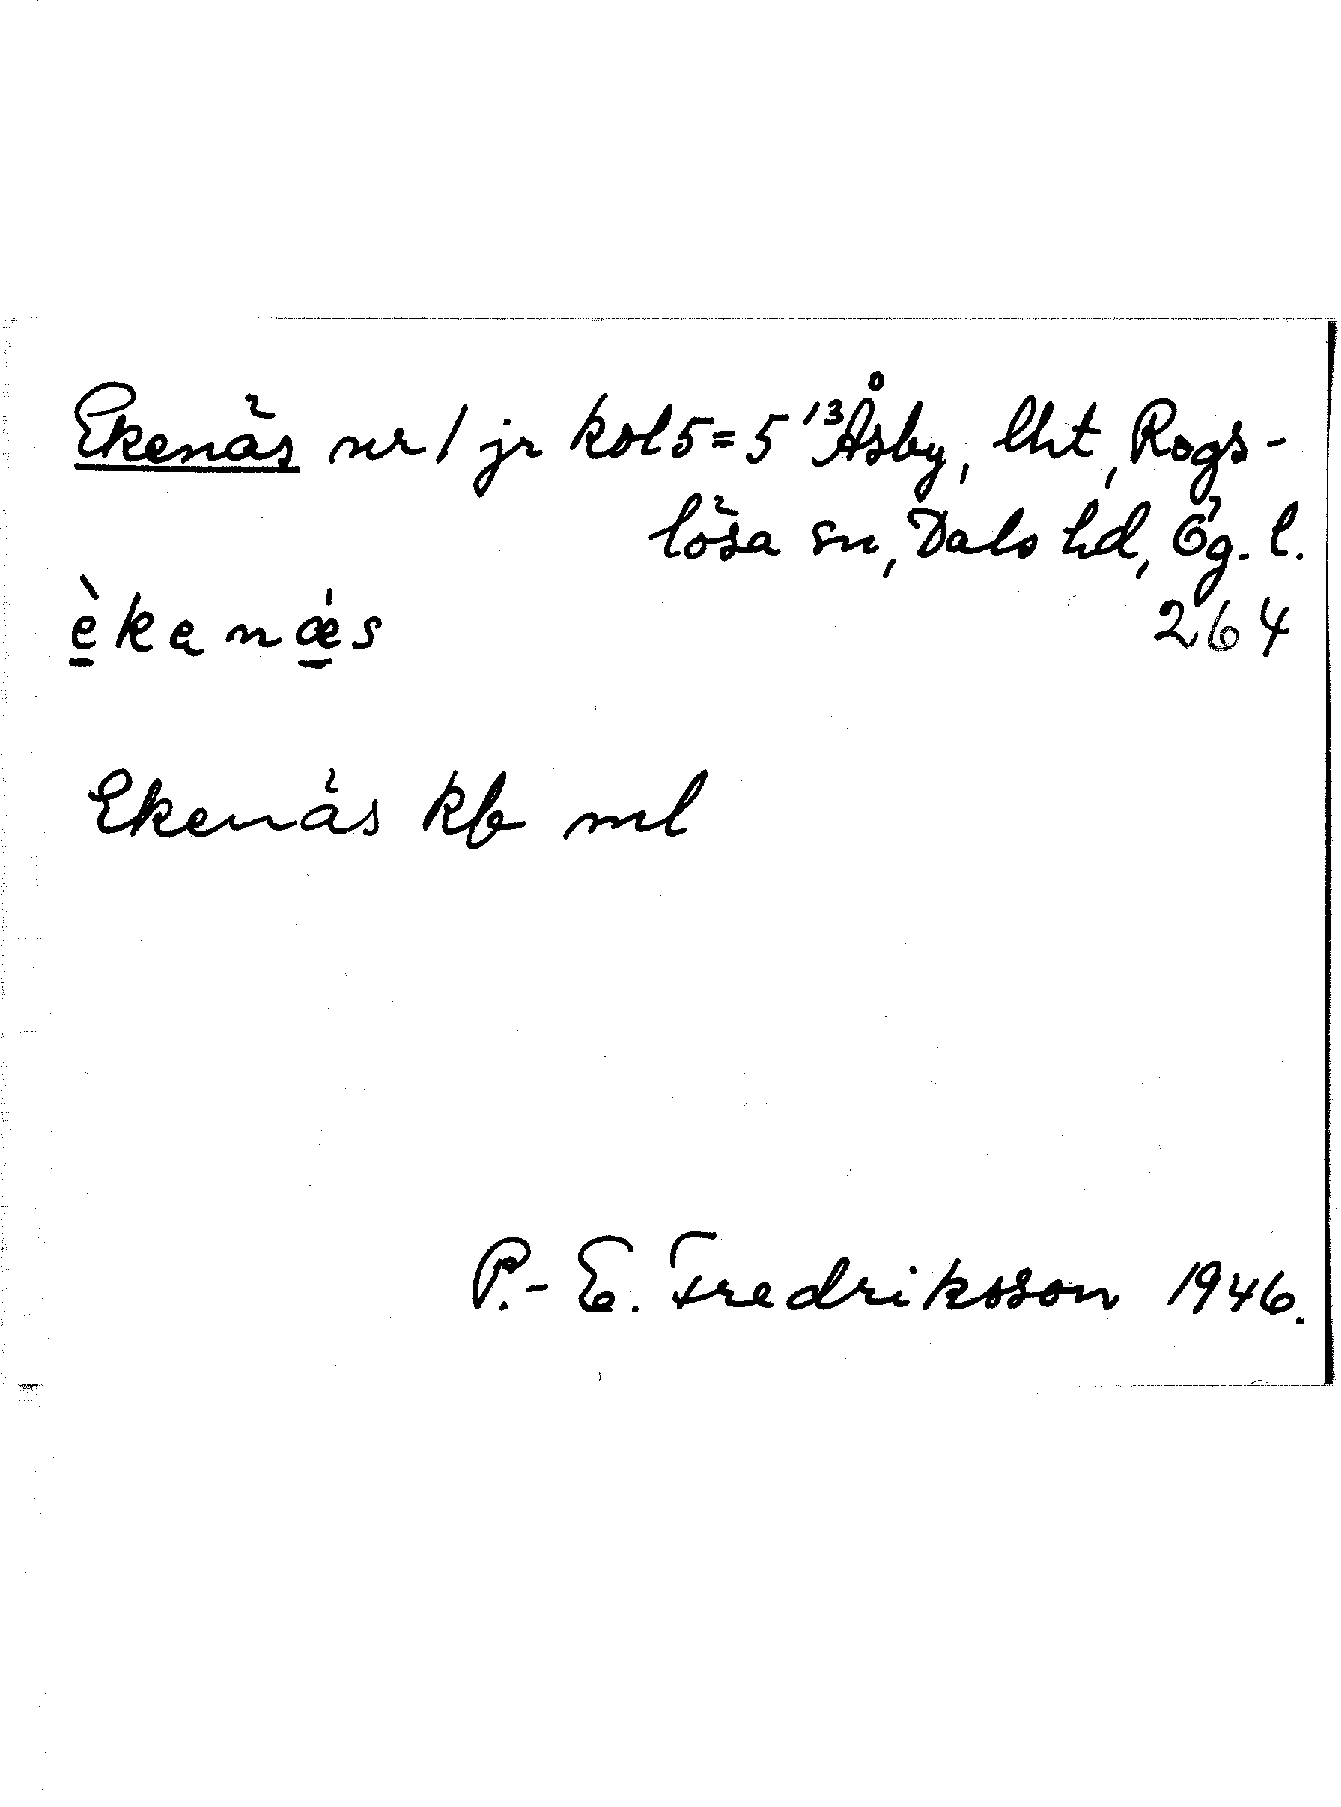 Ekenäs nr 1 jr kol 5 = 5¹³ Åsby, lht, Rogs-
lösa sn, Dals hd, Ög. l.
èkanǽs 264
Ekenäs kb ml
P.-E. Fredriksson 1946.